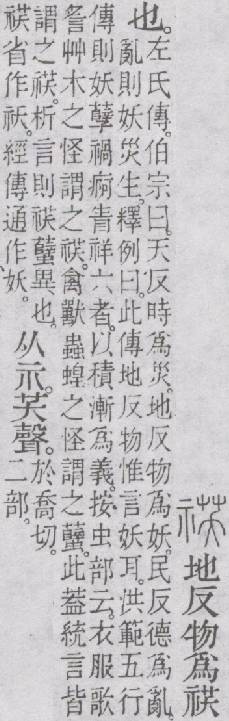 䄏 地反物爲䄏
也。
左氏傳。伯宗曰。天反時爲災。地反物爲妖。民反德爲亂。
亂則妖災生。釋例曰。此傳地反物惟言妖耳。洪範五行
傳則妖孽禍痾眚祥六者。以積漸爲義。按虫部云。衣服歌
䚻艸木之怪謂之䄏。禽獸蟲蝗之怪謂之蠥。此蓋統言皆
謂之䄏。析言則䄏蠥異也。
䄏省作祅。經傳通作妖。
从示。芺聲。
於喬切。
二部。